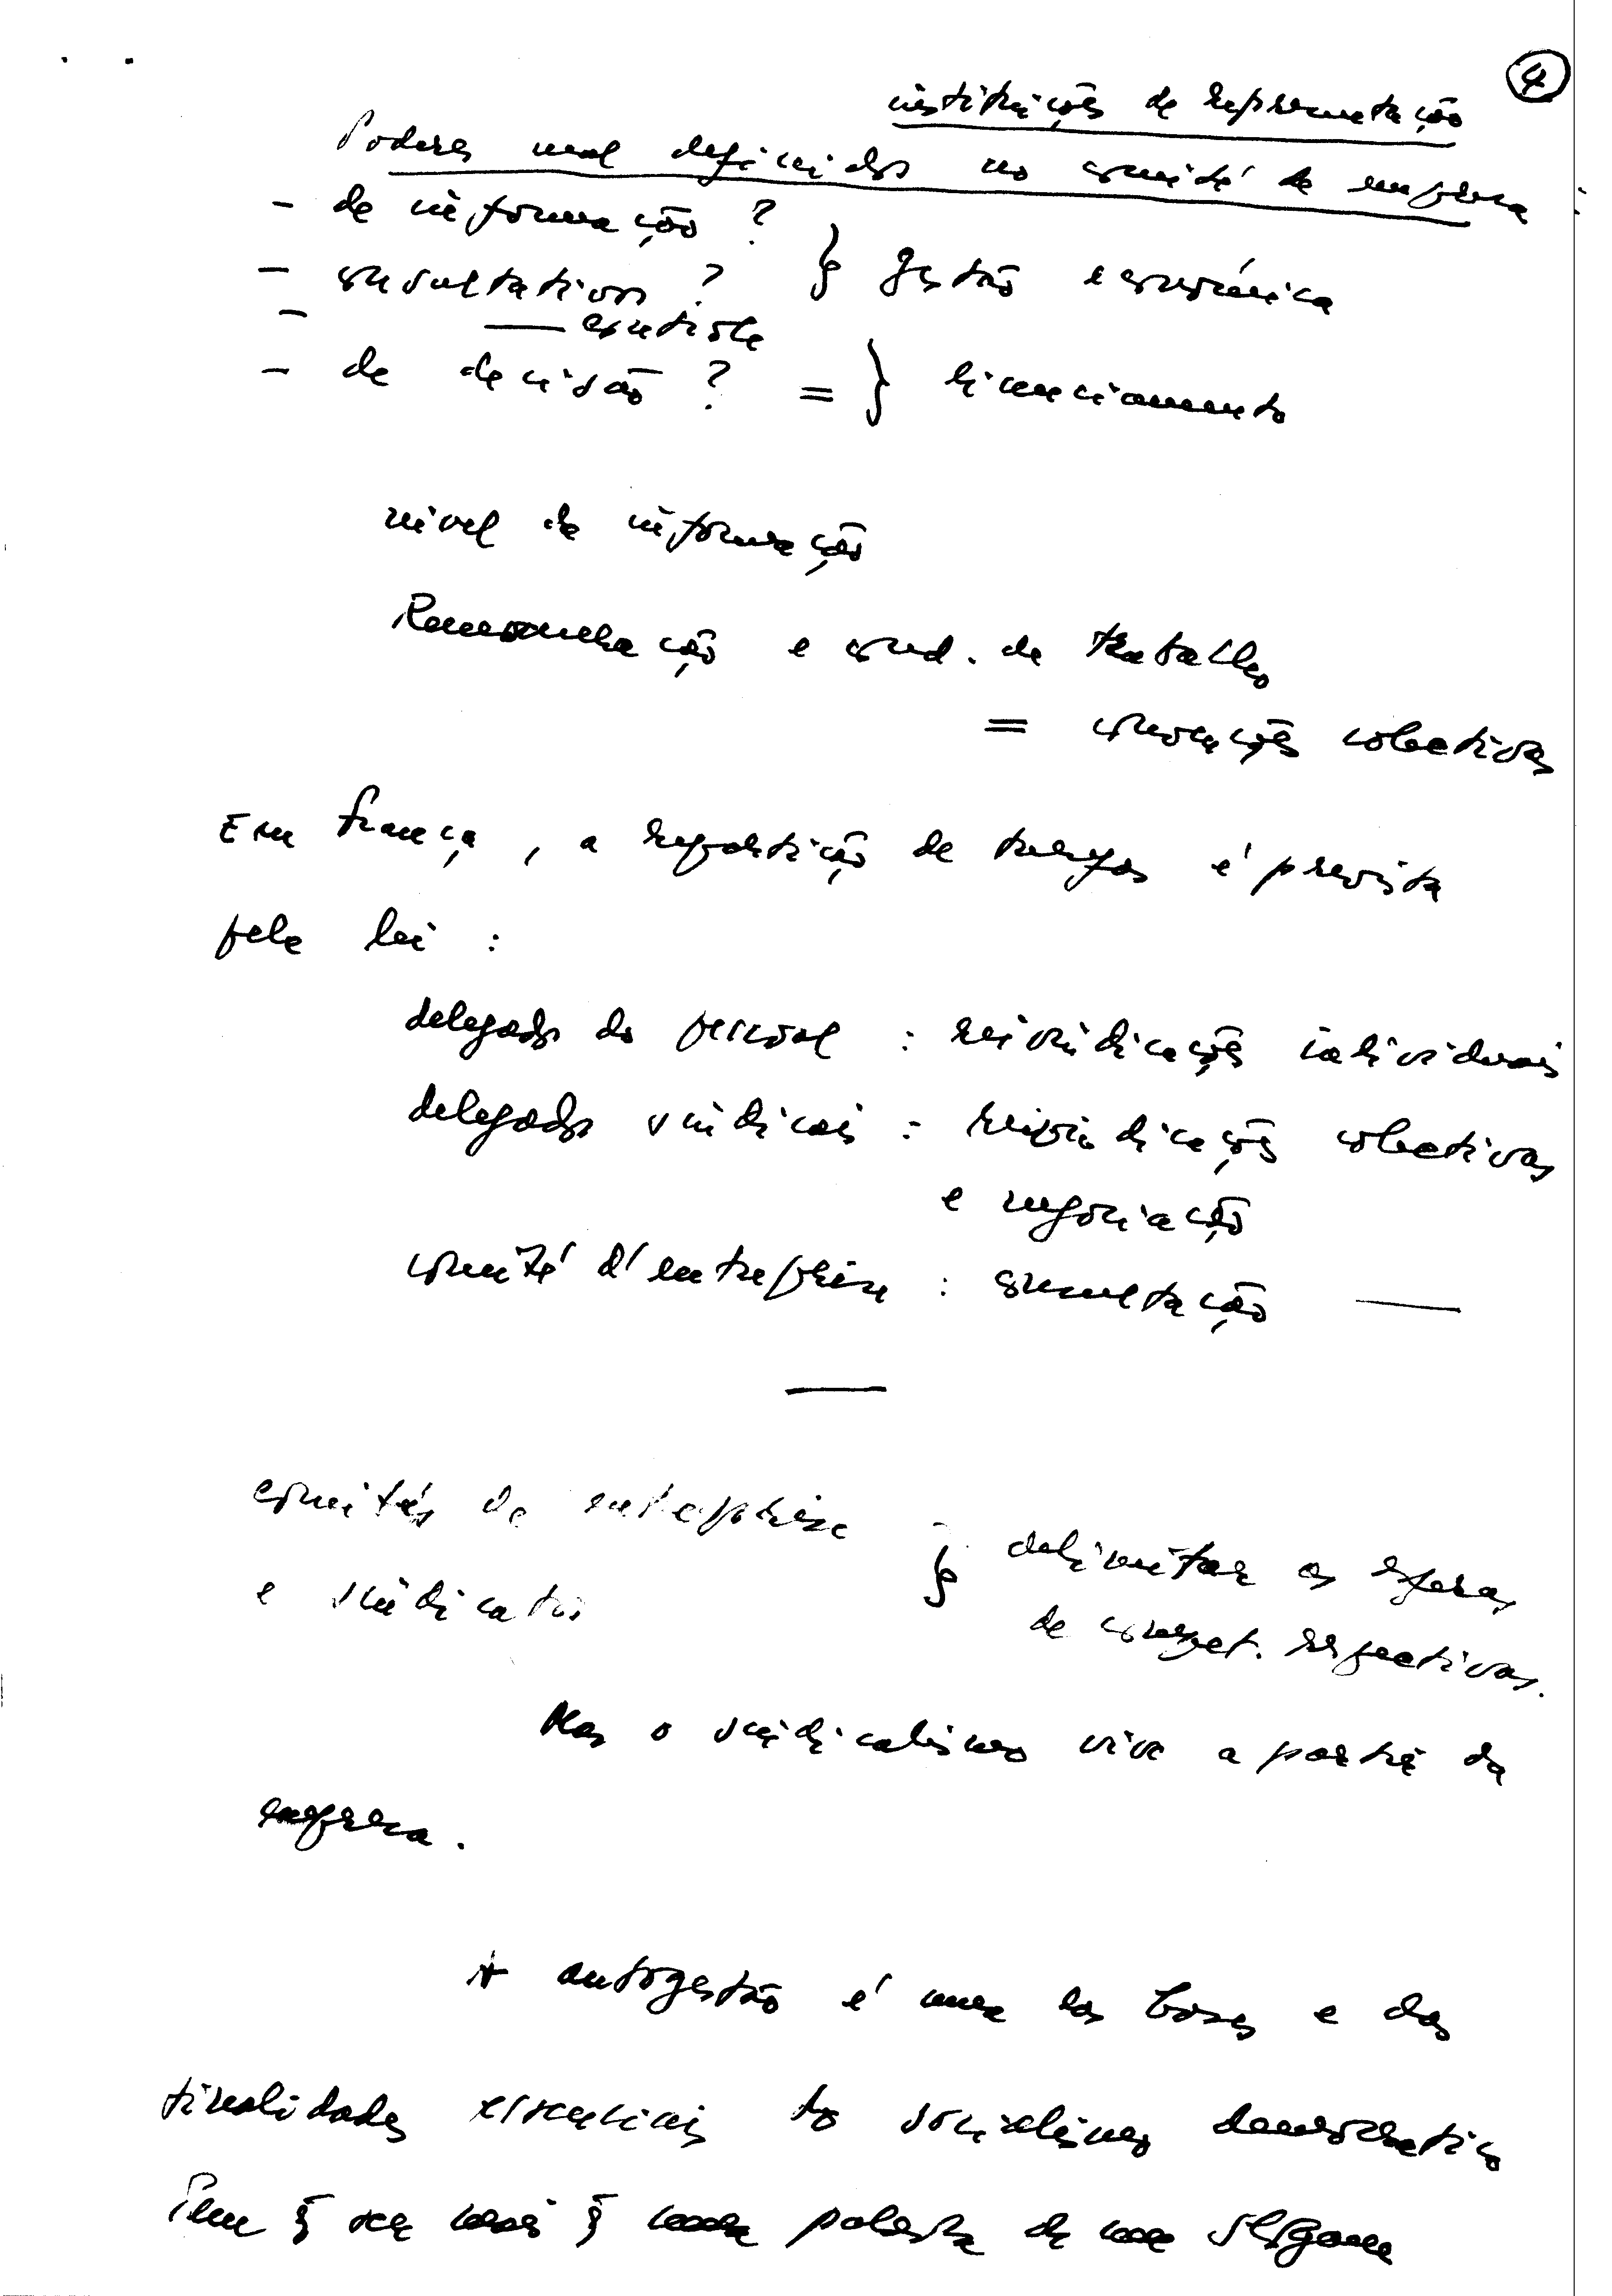 4
instituições de representação
Poderes mal definidos no comité de empresa :
- de informação ?
- consultativos ? } gestão económica
- — controle
- de decisão ? = } licenciamento
nível de informação
Remuneração e cond. de trabalho
= convenções colectivas
Em França, a repartição de tarefas é prevista
pela lei :
delegados do pessoal : reivindicações individuais
delegados sindicais : reivindicações colectivas
e negociação
comité d'entreprise : consultação —
comités de entreprise } delimitar as esferas
e sindicatos de compet. respectivas.
Mas o sindicalismo vive a partir da
empresa.
A autogestão é uma das bases e das
finalidades essenciais do socialismo democrático
Tem q̃ ser mais q̃ uma palavra de um slogan